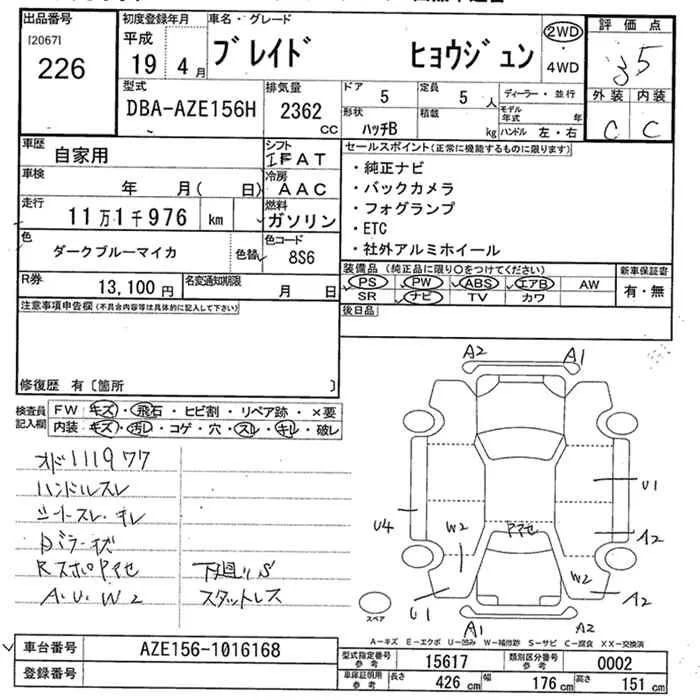 出品番号 初度登録年月 車名・グレード 評価点
[2067] 平成 ブレイド ヒョウジュン 2WD ・ 4WD 3.5
226 19 4月
外装 内装
C C
型式 排気量 ドア 5 定員 5人 ディーラー・並行
DBA-AZE156H 2362cc 形状 ハッチB 積載 kg モデル年式 年
ハンドル 左・右
車歴 自家用 シフト IFAT セールスポイント(正常に機能するものに限ります)
車検 年 月( 日) 冷房 AAC ・純正ナビ
・バックカメラ
走行 11万1千976 km 燃料 ガソリン ・フォグランプ
・ETC
色 ダークブルーマイカ 色替 色コード 8S6 ・社外アルミホイール
R券 13,100円 名変通知期限 月 日 装備品(純正品に限り○をつけてください) 新車保証書
PS PW ABS エアB AW 有・無
SR ナビ TV カワ
注意事項申告欄(不具合内容等は具体的に記入して下さい) 後日品
修復歴 有〔箇所 〕
検査員記入欄 FW キズ・飛石・ヒビ割・リペア跡・×要
内装 キズ・汚レ・コゲ・穴・スレ・キレ・破レ
オド111977
ハンドルスレ
シートスレ・キレ
Dミラーキズ
RスポPアセ 下廻りS
A.U.W2 スタットレス
A2 A1
U1
U4 W2 Pアセ A2
W2
U1 A2
A1 A2
スペア
A−キズ E−エクボ U−凹み W−補修跡 S−サビ C−腐食 XX−交換済
車台番号 AZE156-1016168 型式指定番号参考 15617 類別区分番号参考 0002
登録番号 車庫証明用参考 長さ 426cm 幅 176cm 高さ 151cm